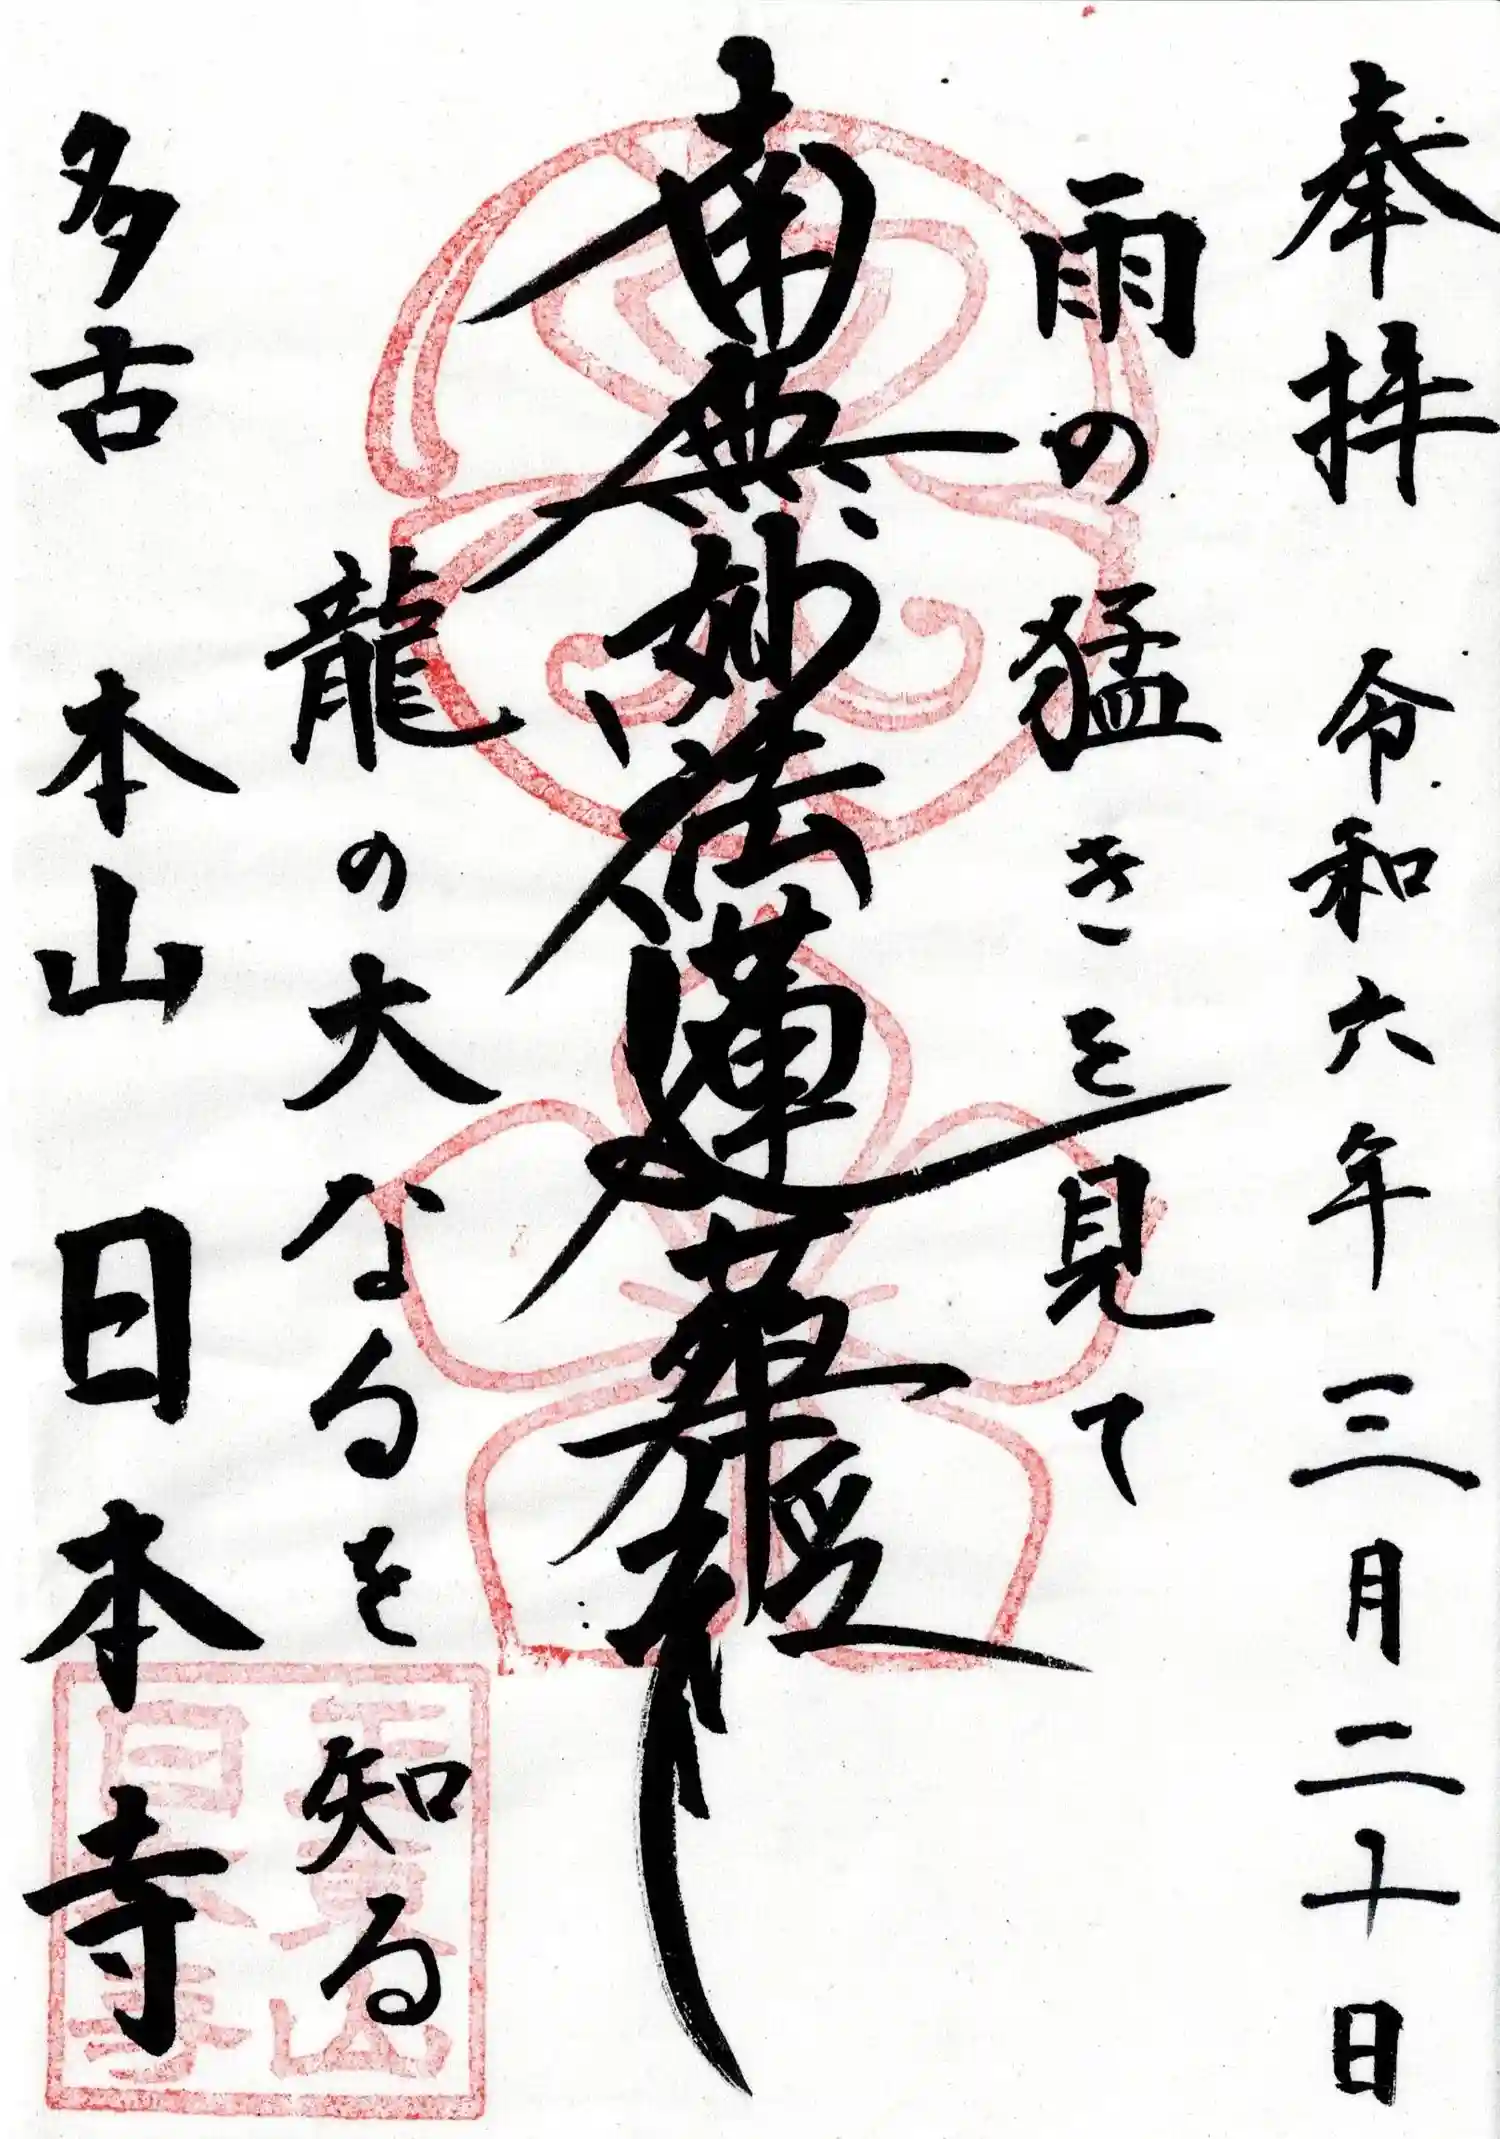 奉拝 令和六年三月二十日
雨の猛きを見て
南無妙法蓮華経
龍の大なるを知る
多古 本山 日本寺
正東山
日本寺